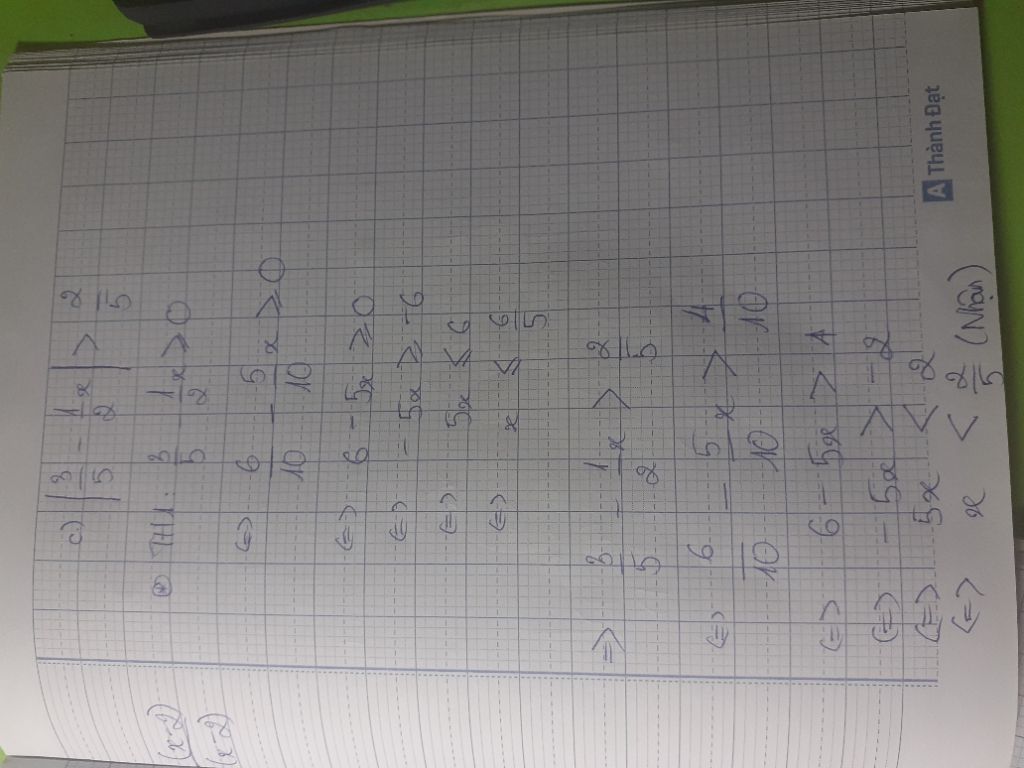 c) |3/5 - 1/2x| > 2/5
⊛ TH1: 3/5 - 1/2x ≥ 0
<=> 6/10 - 5/10x ≥ 0
<=> 6 - 5x ≥ 0
<=> - 5x ≥ -6
<=> 5x ≤ 6
<=> x ≤ 6/5
=> 3/5 - 1/2x > 2/5
<=> 6/10 - 5/10x > 4/10
<=> 6 - 5x > 4
<=> - 5x > -2
<=> 5x < 2
<=> x < 2/5 (Nhận)
A Thành Đạt
(x-2)
(x-2)